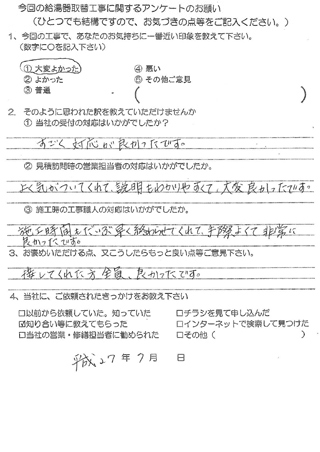 今回の給湯器取替工事に関するアンケートのお願い
（ひとつでも結構ですので、お気づきの点等をご記入ください。）
1、今回の工事で、あなたのお気持ちに一番近い印象を教えて下さい。
（数字に〇を記入下さい）
① 大変よかった　④ 悪い
② よかった　⑥ その他ご意見
③ 普通　（　　　）
2．そのように思われた訳を教えていただけませんか
① 当社の受付の対応はいかがでしたか？
すごく 対応が良かったです。
② 見積訪問時の営業担当者の対応はいかがでしたか。
よく気がついてくれて、説明もわかりやすくて、大変良かったです。
③ 施工時の工事職人の対応はいかがでしたか？
施工時間もだいぶ早く終わらせてくれて、手際よくて 非常に
良かったです。
3、お褒めいただける点、又こうしたらもっと良い点等ご意見下さい。
接してくれた方全員、良かったです。
4、当社に、ご依頼されたきっかけをお教え下さい
□以前から依頼していた。知っていた　□チラシを見て申し込んだ
☑知り合い等に教えてもらった　□インターネットで検索して見つけた
□当社の営業・修繕担当者に勧められた　□その他（　　　）
平成 27 年 7 月　日